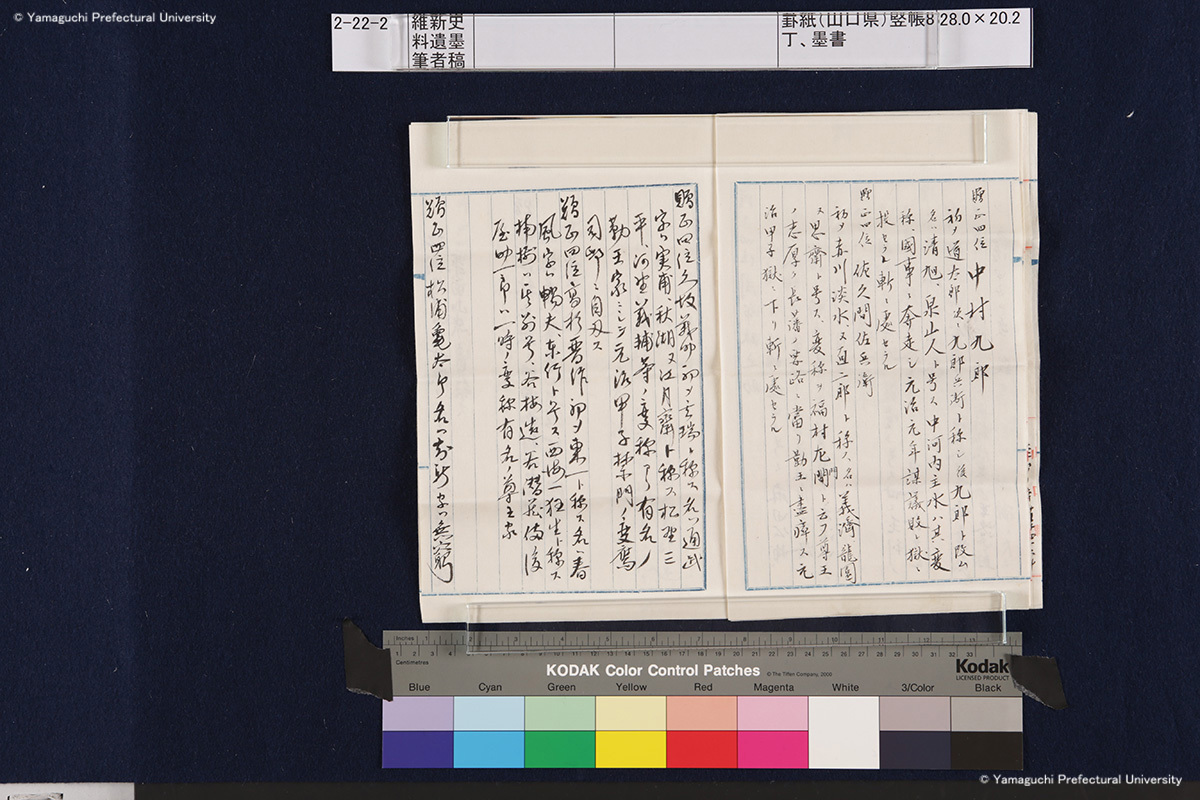 © Yamaguchi Prefectural University
2-22-2
維新史
料遺墨
筆者稿
罫紙(山口県)竪帳8
丁、墨書
28.0×20.2
贈正四位 中村九郎
初メ道太郎次ニ九郎兵衛ト称シ後九郎ト改ム
名ハ清旭、泉山人ト号ス中河内主水ハ其変
称、国事ニ奔走シ元治元年謀議敗レ獄ニ
投セラレ斬ニ處セラル
贈正四位 佐久間佐兵衛
初メ赤川淡水、又直二郎ト称ス、名ハ義濟龍園
又思齋ト号ス、変称ヲ福村左門ト云フ尊王
ノ志厚ク長藩ノ要路ニ當リ勤王ニ盡瘁ス元
治甲子獄ニ下リ斬ニ處セラル
贈正四位久坂義助初メ玄瑞ト称ス名ハ通武
字ハ実甫、秋湖又江月齋ト称ス松野三
平、河野義輔等ノ変称アリ有名ノ
勤王家ニシテ元治甲子禁門ノ変鷹
司邸ニ自刃ス
贈正四位高杉晋作初メ東一ト称ス名ハ春
風字ハ暢夫、東行ト号ス西海一狂生ト称ス
楠樹ハ其別号谷梅造、谷潜蔵備後
屋助一郎ハ一時ノ変称有名ノ尊王家
贈正四位松浦亀太郎名ハ知新字ハ無窮
Inches
Centimetres
KODAK Color Control Patches
© The Tiffen Company, 2000
Kodak
LICENSED PRODUCT
Blue Cyan Green Yellow Red Magenta White 3/Color Black
© Yamaguchi Prefectural University